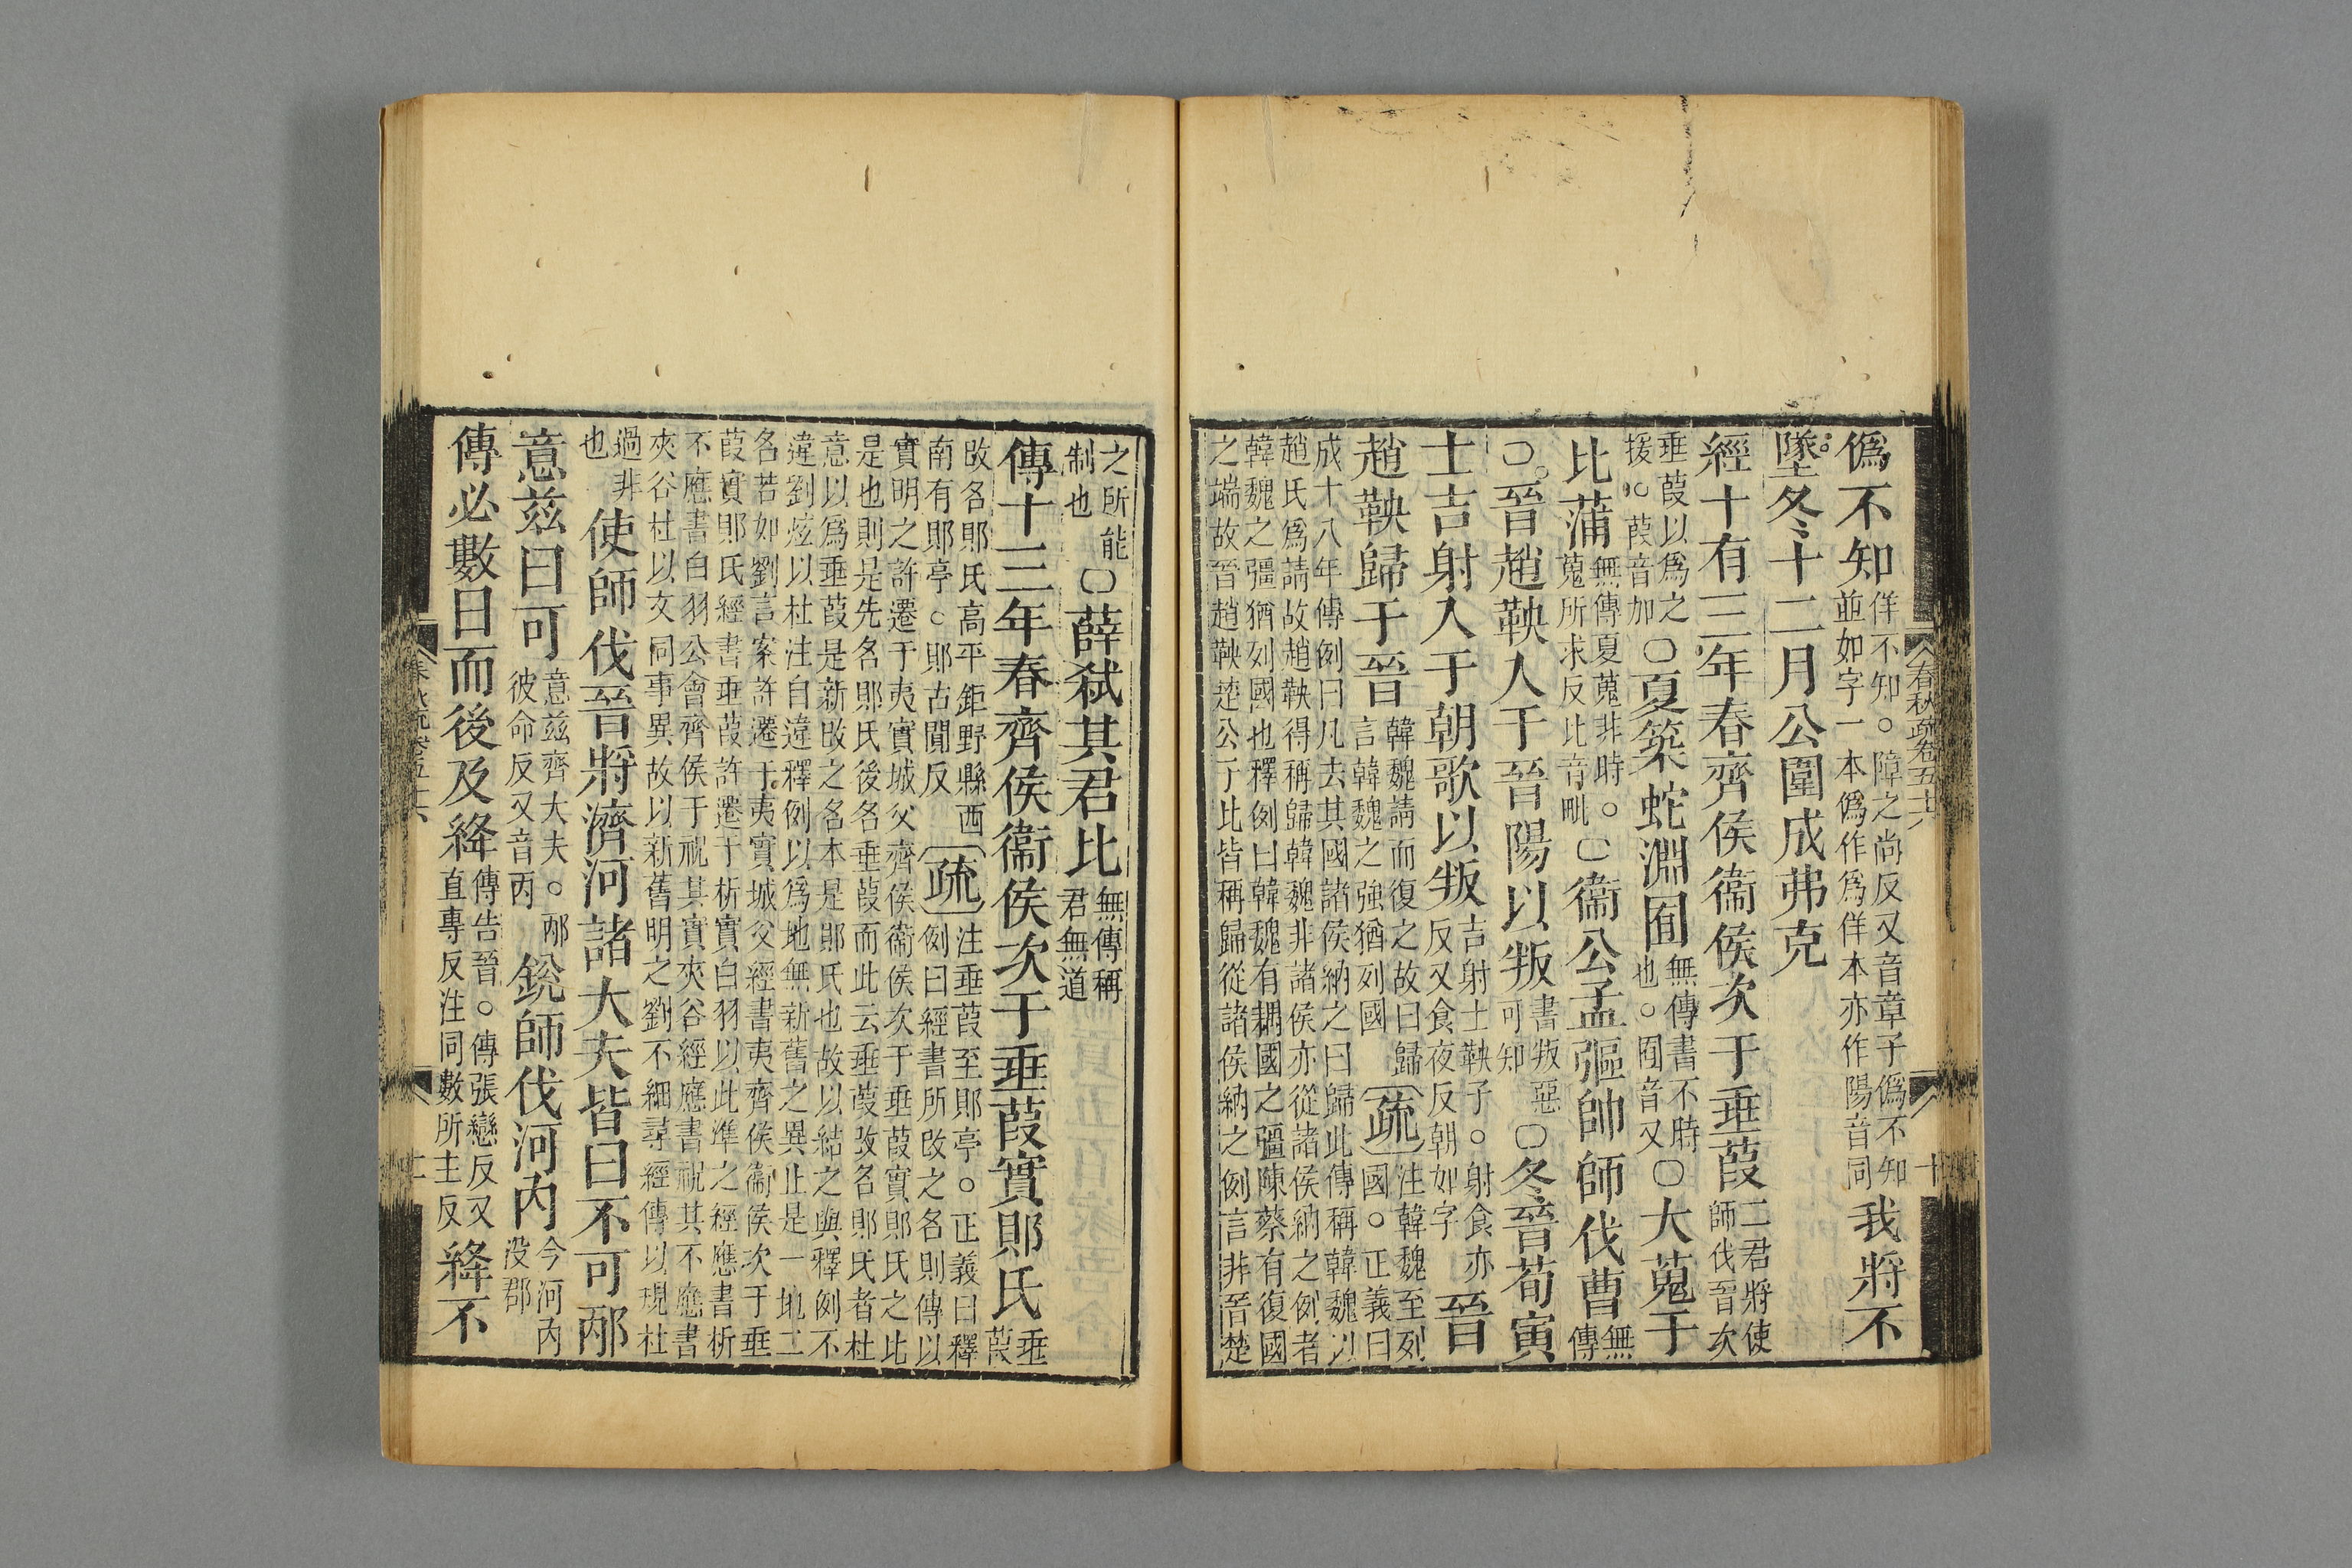 春秋疏卷五十六
十
僞不知
佯不知。障之尚反又音章子僞不知
並如字一本僞作爲佯本亦作陽音同
我將不
墜冬十二月公圍成弗克
經十有三年春齊侯衞侯次于垂葭
二君將使
師伐晉次
垂葭以爲之
援。葭音加
○夏築蛇淵囿
無傳書不時
也。囿音又
○大蒐于
比蒲
無傳夏蒐非時。
蒐所求反比音毗
○衞公孟彄帥師伐曹
無
傳
○晉趙鞅入于晉陽以叛
書叛惡
可知
○冬晉荀寅
士吉射入于朝歌以叛
吉射士鞅子。射食亦
反又食夜反朝如字
晉
趙鞅歸于晉
韓魏請而復之故曰歸
言韓魏之強猶列國
疏
注韓魏至列
國。正義曰
成十八年傳例曰凡去其國諸侯納之曰歸此傳稱韓魏以
趙氏爲請故趙鞅得稱歸韓魏非諸侯亦從諸侯納之例者
韓魏之彊猶列國也釋例曰韓魏有耦國之彊陳蔡有復國
之端故晉趙鞅楚公子比皆稱歸從諸侯納之例言非晉楚
之所能
制也
○薛弒其君比
無傳稱
君無道
傳十三年春齊侯衞侯次于垂葭實郹氏
垂
葭
改名郹氏高平鉅野縣西
南有郹亭。郹古閴反
疏
注垂葭至郹亭。正義曰釋
例曰經書所改之名則傳以
實明之許遷于夷實城父齊侯衞侯次于垂葭實郹氏之比
是也則是先名郹氏後名垂葭而此云垂葭改名郹氏者杜
意以爲垂葭是新改之名本是郹氏也故以結之與釋例不
違劉炫以杜注自違釋例以爲地無新舊之異止是一地二
名若如劉言案許遷于夷實城父經書夷齊侯衞侯次于垂
葭實郹氏經書垂葭許遷于析實白羽以此準之經應書析
不應書白羽公會齊侯于祝其實夾谷經應書祝其不應書
夾谷杜以文同事異故以新舊明之劉不細尋經傳以規杜
過非
也
使師伐晉將濟河諸大夫皆曰不可邴
意兹曰可
意兹齊大夫。邴
彼命反又音丙
銳師伐河內
今河內
汲郡
傳必數日而後及絳
傳告晉。傳張戀反又
直專反注同數所主反
絳不